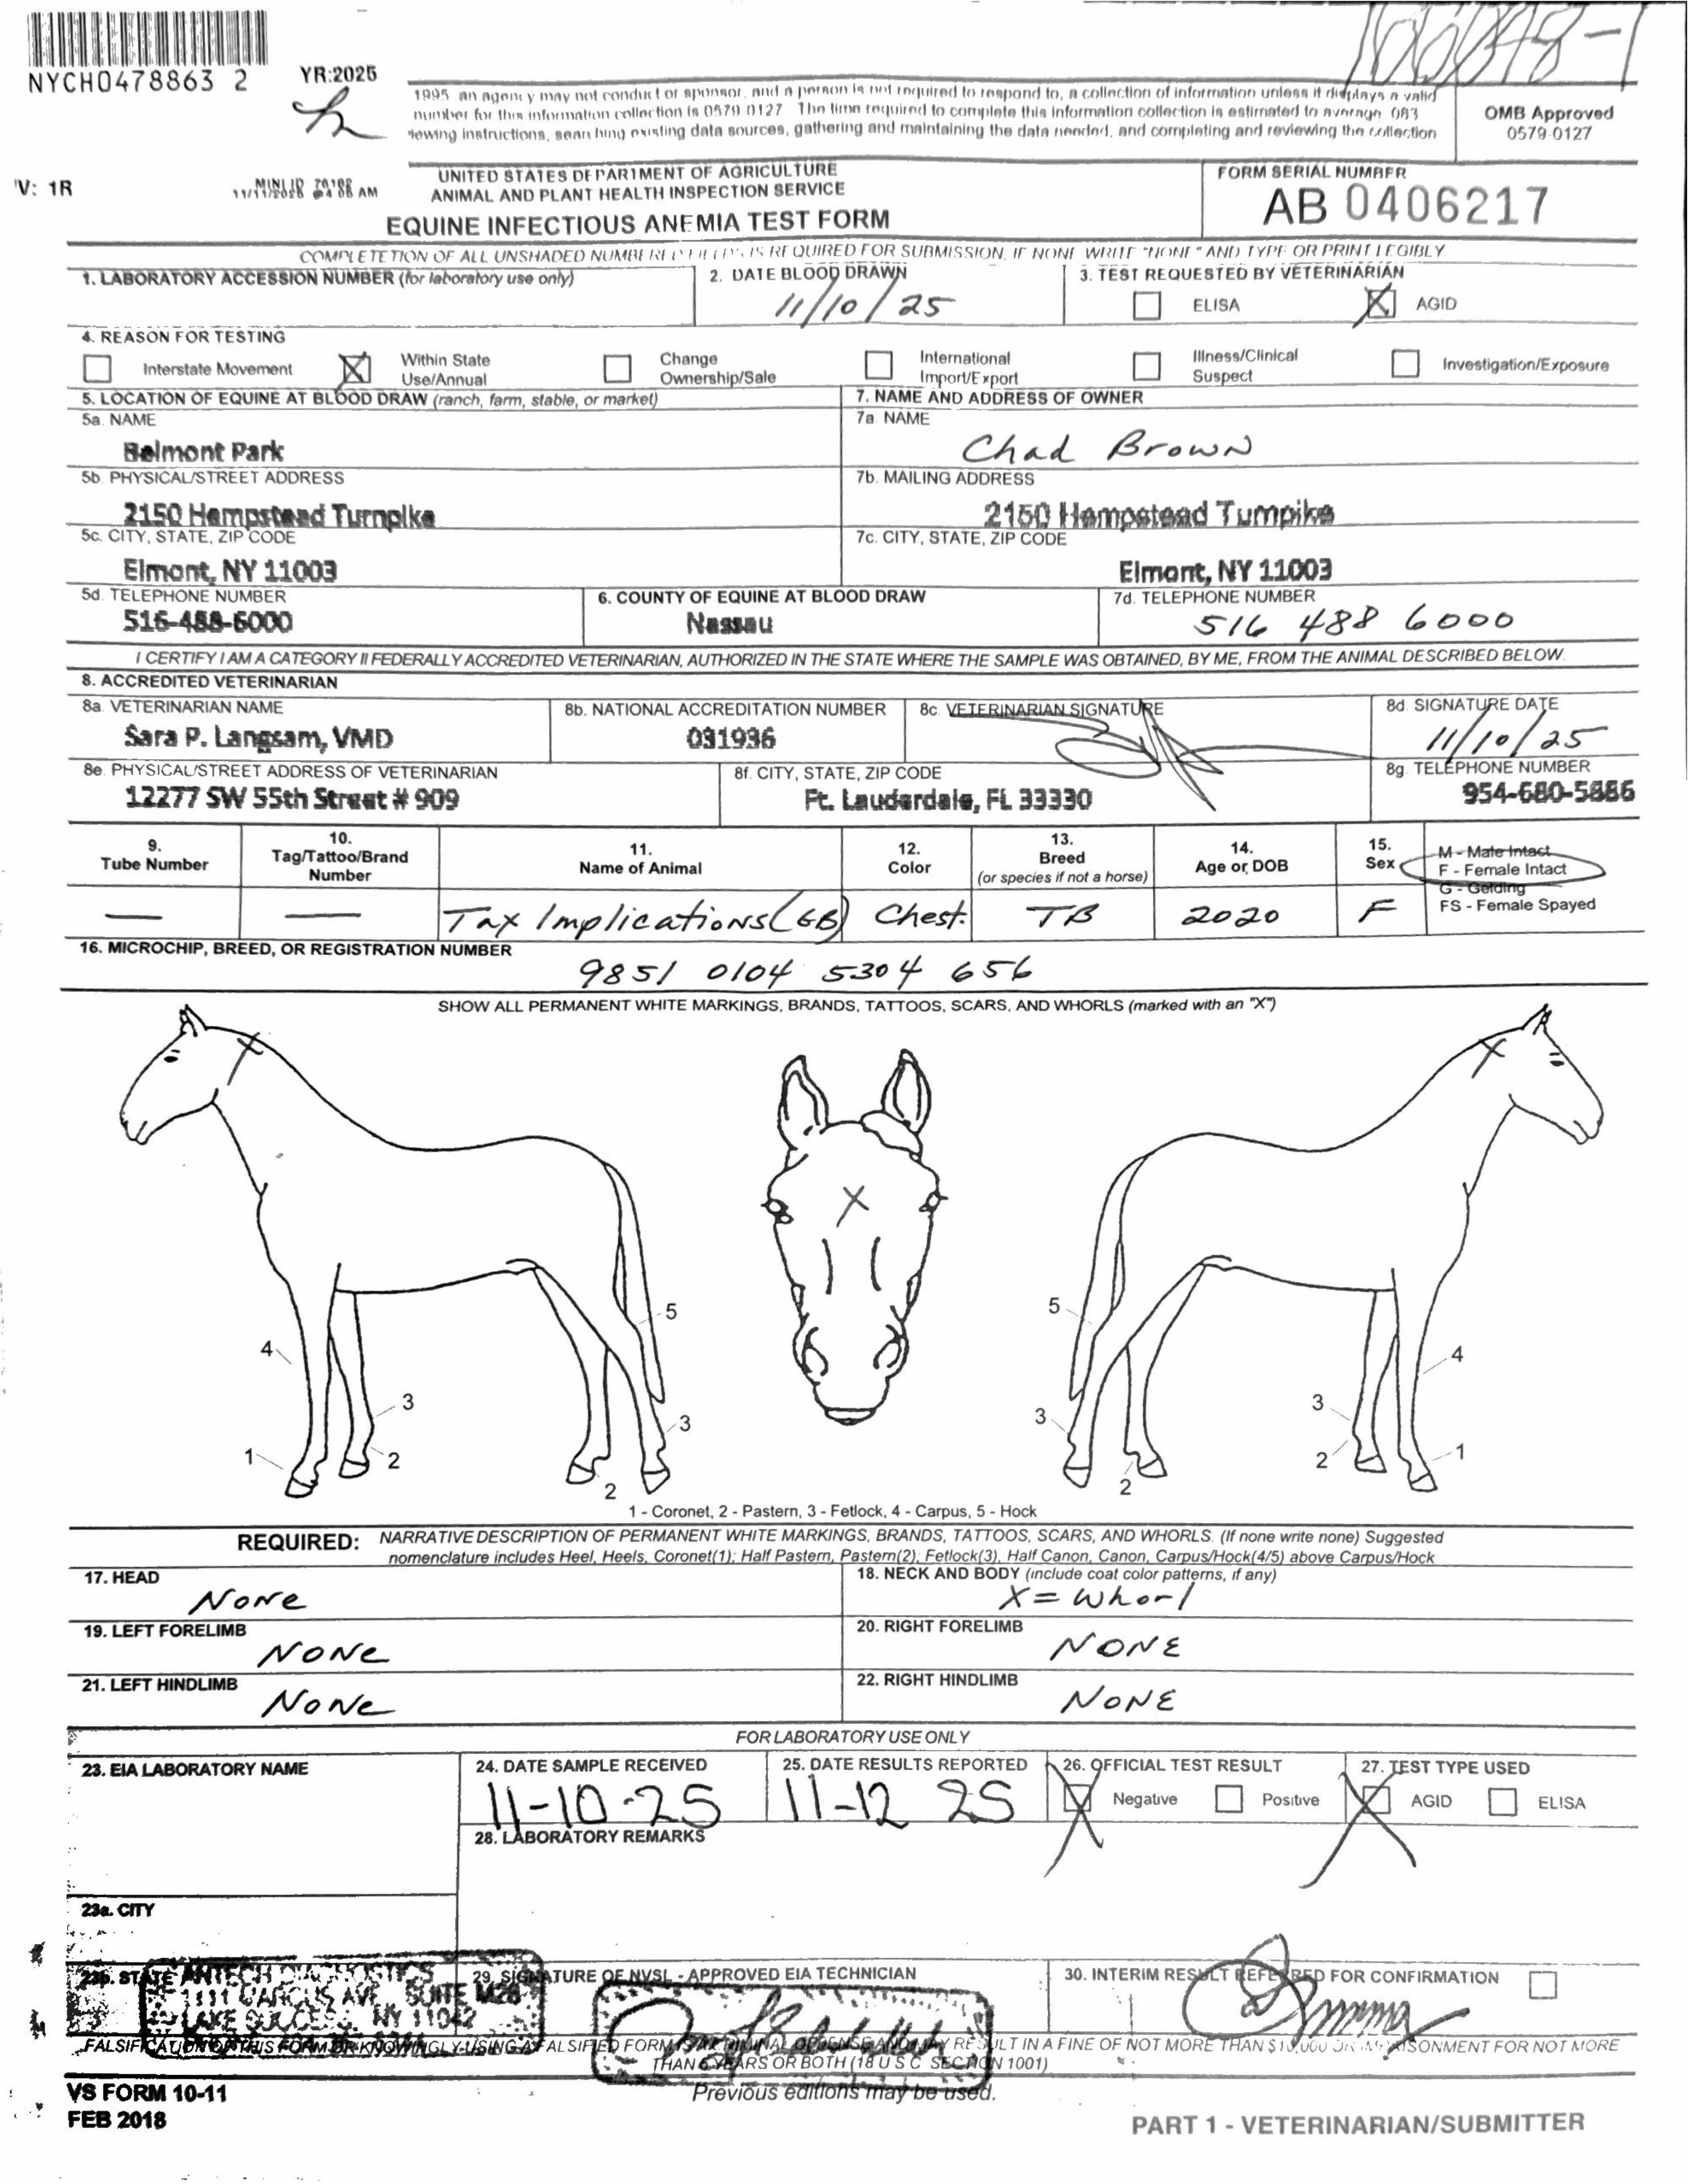 NYCH0478863 2
YR:2025
1995 an agency may not conduct or sponsor, and a person is not required to respond to, a collection of information unless it displays a valid
number for this information collection is 0579 0127 The time required to complete this information collection is estimated to average 083
iewing instructions, searching existing data sources, gathering and maintaining the data needed, and completing and reviewing the collection
OMB Approved
0579-0127
V: 1R
UNITED STATES DEPARTMENT OF AGRICULTURE
ANIMAL AND PLANT HEALTH INSPECTION SERVICE
EQUINE INFECTIOUS ANEMIA TEST FORM
FORM SERIAL NUMBER
AB 0406217
COMPLETETION OF ALL UNSHADED NUMBERED FIELDS IS REQUIRED FOR SUBMISSION, IF NONE WRITE "NONE" AND TYPE OR PRINT LEGIBLY
1. LABORATORY ACCESSION NUMBER (for laboratory use only)
2. DATE BLOOD DRAWN
11/10/25
3. TEST REQUESTED BY VETERINARIAN
ELISA
AGID
4. REASON FOR TESTING
Interstate Movement
Within State
Use/Annual
Change
Ownership/Sale
International
Import/Export
Illness/Clinical
Suspect
Investigation/Exposure
5. LOCATION OF EQUINE AT BLOOD DRAW (ranch, farm, stable, or market)
7. NAME AND ADDRESS OF OWNER
5a. NAME
Belmont Park
7a. NAME
Chad Brown
5b. PHYSICAL/STREET ADDRESS
2150 Hempstead Turnpike
7b. MAILING ADDRESS
2150 Hempstead Turnpike
5c. CITY, STATE, ZIP CODE
Elmont, NY 11003
7c. CITY, STATE, ZIP CODE
Elmont, NY 11003
5d. TELEPHONE NUMBER
516-488-6000
6. COUNTY OF EQUINE AT BLOOD DRAW
Nassau
7d. TELEPHONE NUMBER
516 488 6000
I CERTIFY I AM A CATEGORY II FEDERALLY ACCREDITED VETERINARIAN, AUTHORIZED IN THE STATE WHERE THE SAMPLE WAS OBTAINED, BY ME, FROM THE ANIMAL DESCRIBED BELOW.
8. ACCREDITED VETERINARIAN
8a. VETERINARIAN NAME
Sara P. Langsam, VMD
8b. NATIONAL ACCREDITATION NUMBER
031936
8c. VETERINARIAN SIGNATURE
8d. SIGNATURE DATE
11/10/25
8e. PHYSICAL/STREET ADDRESS OF VETERINARIAN
12277 SW 55th Street # 909
8f. CITY, STATE, ZIP CODE
Ft. Lauderdale, FL 33330
8g. TELEPHONE NUMBER
954-680-5886
9.
Tube Number
10.
Tag/Tattoo/Brand
Number
11.
Name of Animal
12.
Color
13.
Breed
(or species if not a horse)
14.
Age or DOB
15.
Sex
M - Male Intact
F - Female Intact
G - Gelding
FS - Female Spayed
— — Tax Implications (GB) Chest. TB 2020 F
16. MICROCHIP, BREED, OR REGISTRATION NUMBER
9851 0104 5304 656
SHOW ALL PERMANENT WHITE MARKINGS, BRANDS, TATTOOS, SCARS, AND WHORLS (marked with an "X")
X
X
X
5
5
4
4
3
3
3
3
1
2
2
1
2
2
1 - Coronet, 2 - Pastern, 3 - Fetlock, 4 - Carpus, 5 - Hock
REQUIRED: NARRATIVE DESCRIPTION OF PERMANENT WHITE MARKINGS, BRANDS, TATTOOS, SCARS, AND WHORLS. (If none write none) Suggested
nomenclature includes Heel, Heels, Coronet(1); Half Pastern, Pastern(2); Fetlock(3), Half Canon, Canon, Carpus/Hock(4/5) above Carpus/Hock
17. HEAD
None
18. NECK AND BODY (include coat color patterns, if any)
X = Whorl
19. LEFT FORELIMB
NONe
20. RIGHT FORELIMB
NONE
21. LEFT HINDLIMB
NoNe
22. RIGHT HINDLIMB
NONE
FOR LABORATORY USE ONLY
23. EIA LABORATORY NAME
24. DATE SAMPLE RECEIVED
11-10-25
25. DATE RESULTS REPORTED
11-12 25
26. OFFICIAL TEST RESULT
Negative
Positive
27. TEST TYPE USED
AGID
ELISA
28. LABORATORY REMARKS
23a. CITY
23b. STATE
ANTECH DIAGNOSTICS
1111 MARCUS AVE., SUITE M28
LAKE SUCCESS, NY 11042
29. SIGNATURE OF NVSL - APPROVED EIA TECHNICIAN
30. INTERIM RESULT REFERRED FOR CONFIRMATION
FALSIFICATION OF THIS FORM OR KNOWINGLY USING A FALSIFIED FORM IS A CRIMINAL OFFENSE AND MAY RESULT IN A FINE OF NOT MORE THAN $10,000 OR IMPRISONMENT FOR NOT MORE
THAN 5 YEARS OR BOTH (18 U S C SECTION 1001)
VS FORM 10-11
FEB 2018
Previous editions may be used.
PART 1 - VETERINARIAN/SUBMITTER